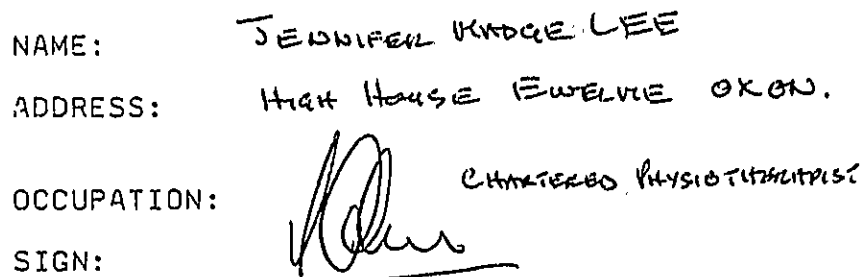 NAME: JENNIFER MADGE LEE
ADDRESS: HIGH HOUSE EWELME OXON.
OCCUPATION: CHARTERED PHYSIOTHERAPIST
SIGN: